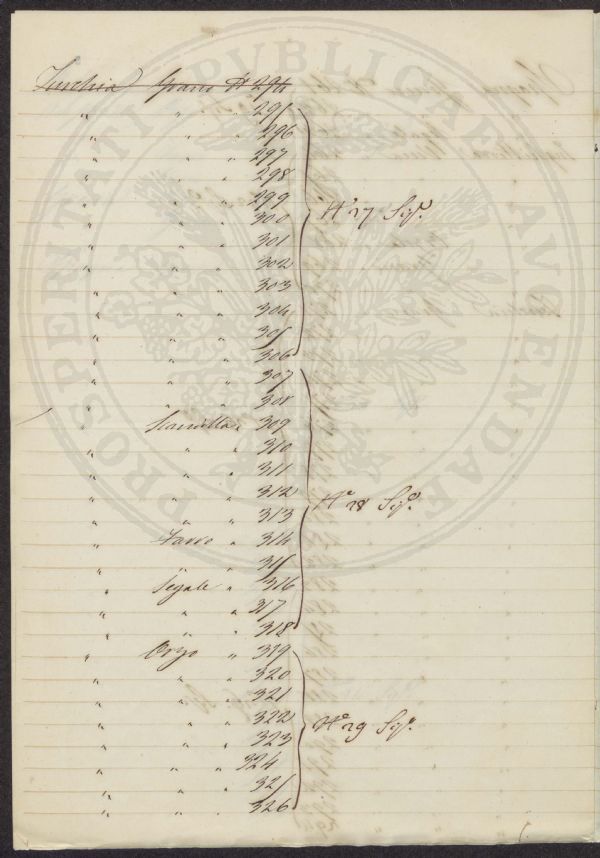 Turchia Grano N° 294
" " " 295
" " " 296
" " " 297
" " " 298
" " " 299
" " " 300
" " " 301
" " " 302
" " " 303
" " " 304
" " " 305
" " " 306
N° 27
" " " 307
" " " 308
" " 309
" " " 310
" " " 311
" " " 312
" " " 313
" Farro " 314
" " " 315
" Segale " 316
" " " 317
" " " 318
N° 28
" Orzo " 319
" " " 320
" " " 321
" " " 322
" " " 323
" " " 324
" " " 325
" " " 326
N° 29
PROSPERITATI PUBLICAE AUGENDAE